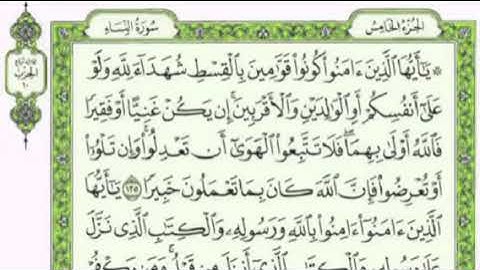 الجزء الخامس
سورة النساء
۞ يَٰٓأَيُّهَا ٱلَّذِينَ ءَامَنُوا۟ كُونُوا۟ قَوَّٰمِينَ بِٱلْقِسْطِ شُهَدَآءَ لِلَّهِ وَلَوْ
عَلَىٰٓ أَنفُسِكُمْ أَوِ ٱلْوَٰلِدَيْنِ وَٱلْأَقْرَبِينَ ۚ إِن يَكُنْ غَنِيًّا أَوْ فَقِيرًا
فَٱللَّهُ أَوْلَىٰ بِهِمَا ۖ فَلَا تَتَّبِعُوا۟ ٱلْهَوَىٰٓ أَن تَعْدِلُوا۟ ۚ وَإِن تَلْوُۥٓا۟
أَوْ تُعْرِضُوا۟ فَإِنَّ ٱللَّهَ كَانَ بِمَا تَعْمَلُونَ خَبِيرًا ١٣٥ يَٰٓأَيُّهَا
ٱلَّذِينَ ءَامَنُوٓا۟ ءَامِنُوا۟ بِٱللَّهِ وَرَسُولِهِۦ وَٱلْكِتَٰبِ ٱلَّذِى نَزَّلَ
عَلَىٰ رَسُولِهِۦ وَٱلْكِتَٰبِ ٱلَّذِىٓ أَنزَلَ مِن قَبْلُ ۚ وَمَن يَكْفُرْ
الحزب
١٠